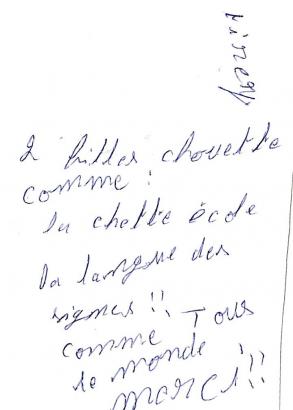 2 filles chouette
comme :
la chette école
la langue des
signes !!
comme Tous
le monde
merci !!